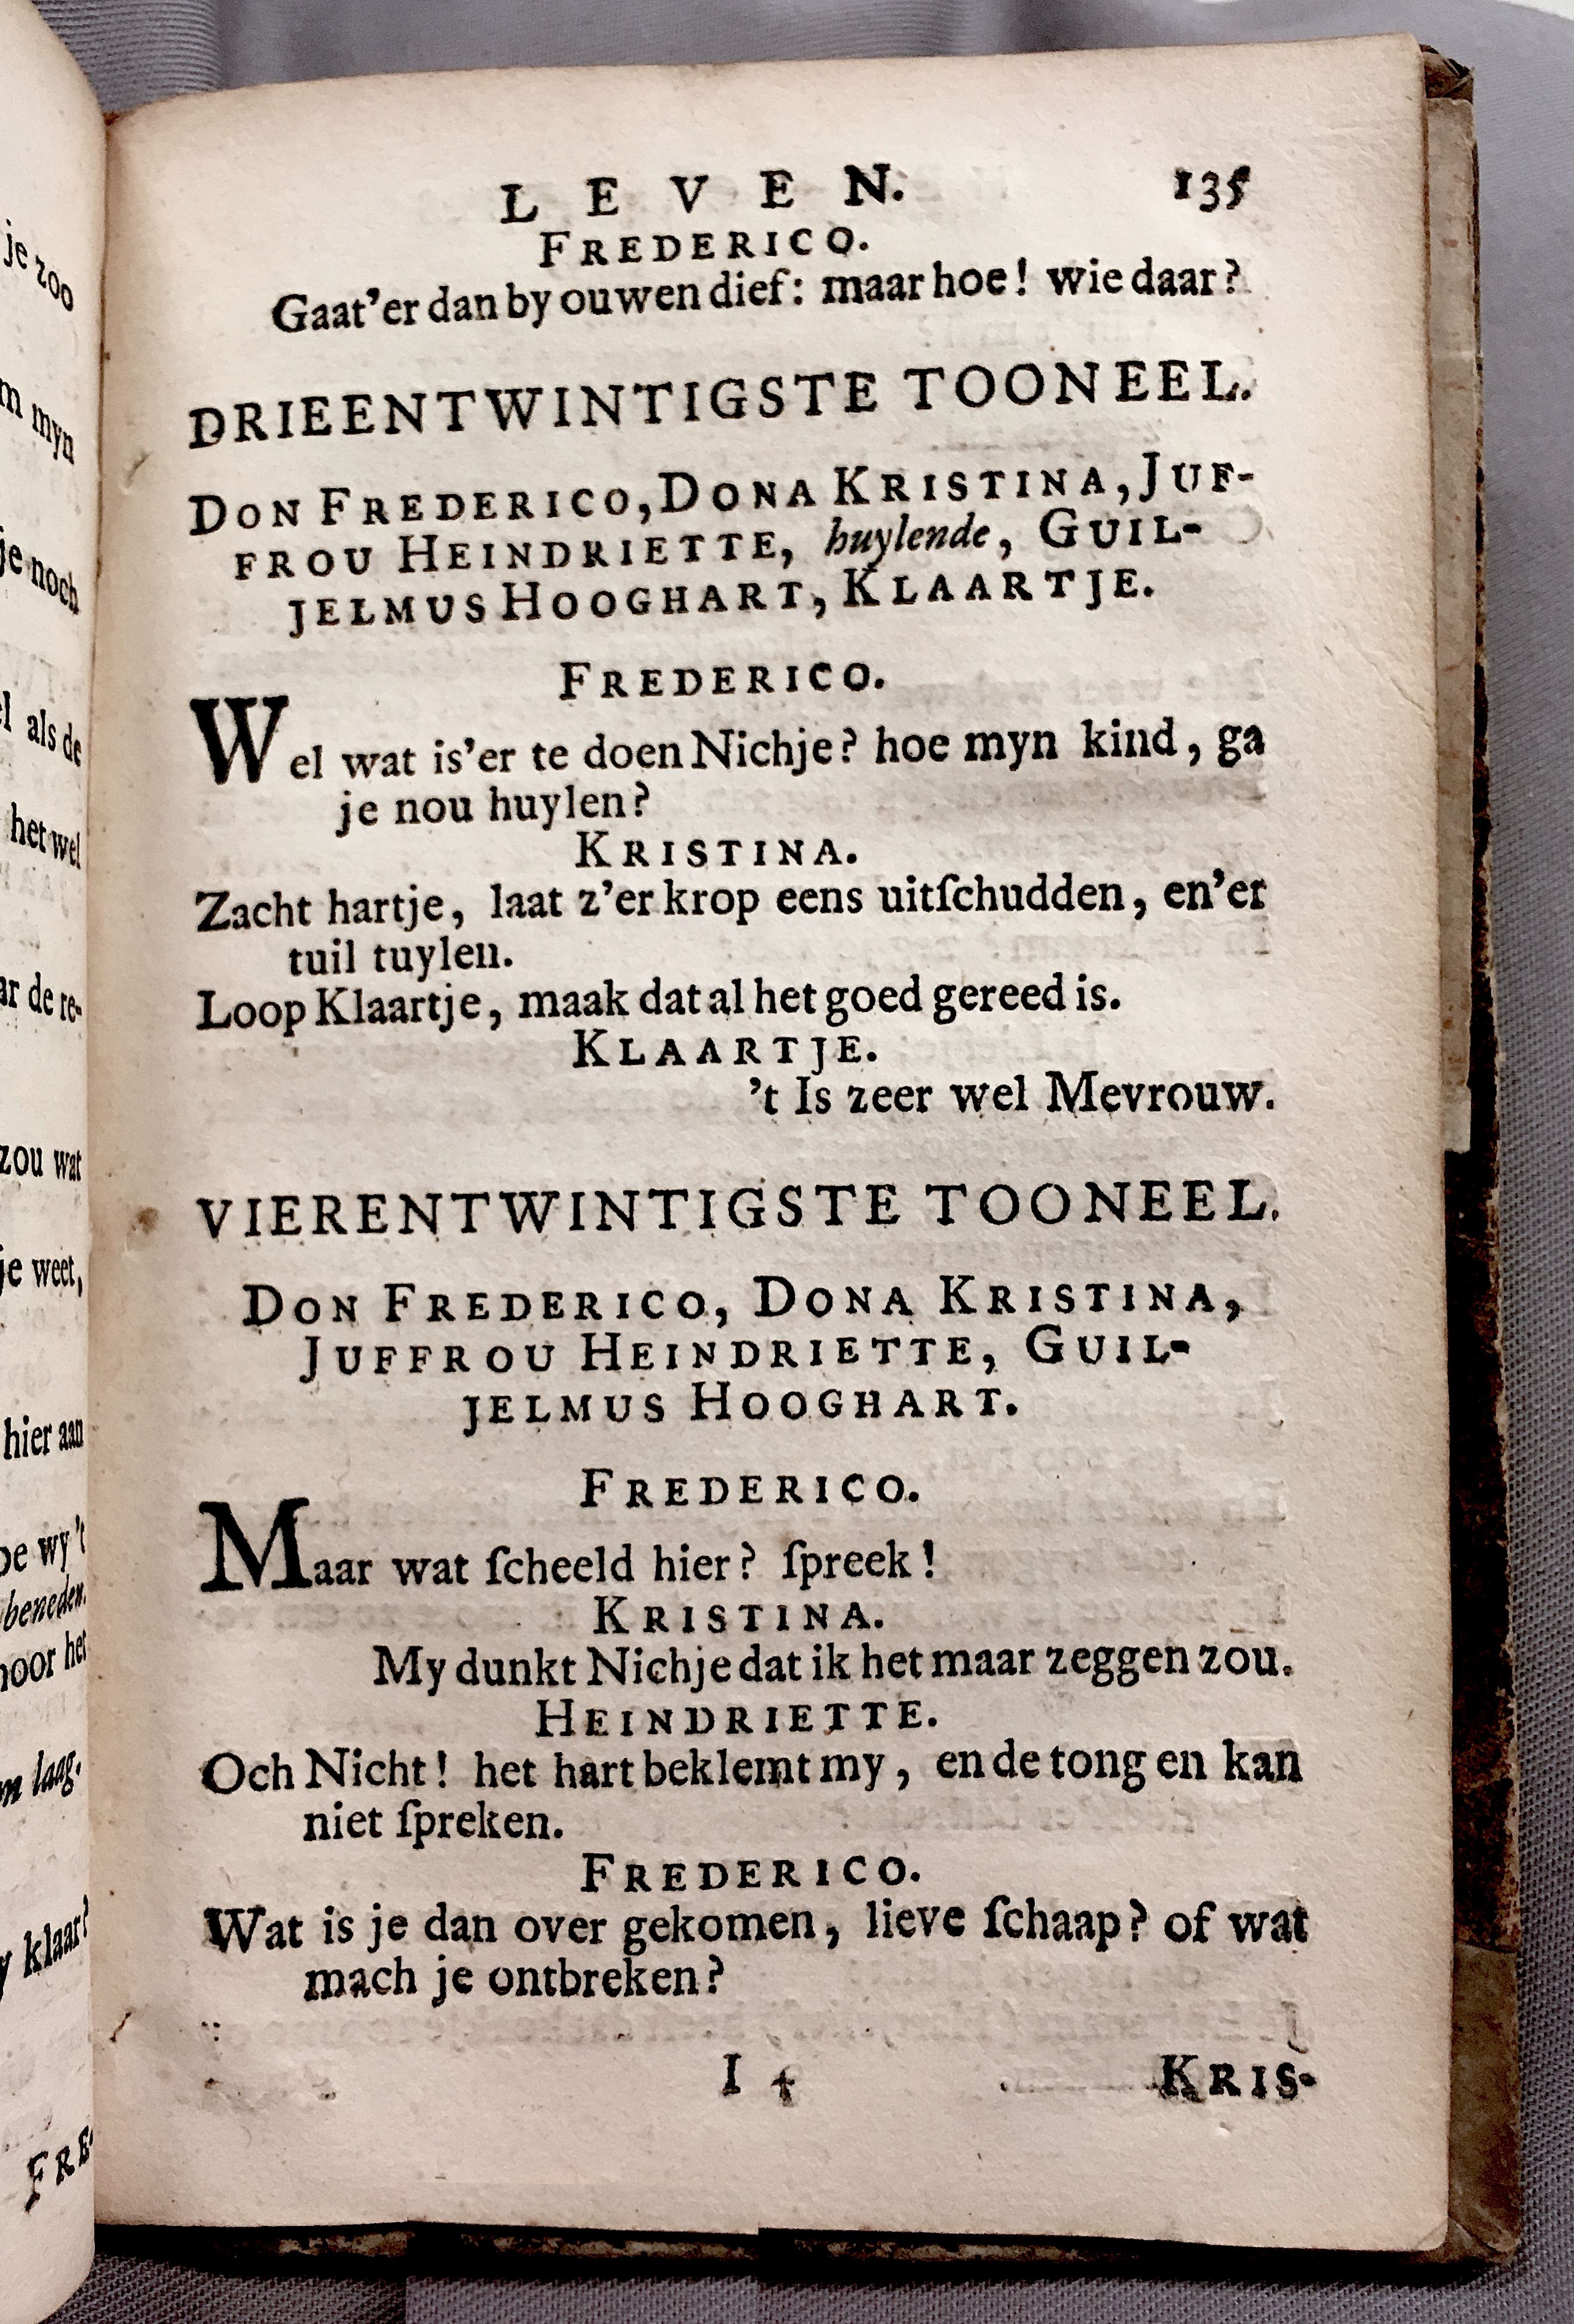 je zoo
m myn
je noch
als de
het wel
ar de re-
zou wat
je weet,
hier aan
oe wy 't
beneden.
hoor het
laag.
y klaar?
FRE-
LEVEN. 135
FREDERICO.
Gaat'er dan by ouwen dief: maar hoe! wie daar?
DRIEENTWINTIGSTE TOONEEL.
DON FREDERICO, DONA KRISTINA, JUF-
FROU HEINDRIETTE, huylende, GUIL-
JELMUS HOOGHART, KLAARTJE.
FREDERICO.
Wel wat is'er te doen Nichje? hoe myn kind, ga
je nou huylen?
KRISTINA.
Zacht hartje, laat z'er krop eens uitſchudden, en'er
tuil tuylen.
Loop Klaartje, maak dat al het goed gereed is.
KLAARTJE.
't Is zeer wel Mevrouw.
VIERENTWINTIGSTE TOONEEL.
DON FREDERICO, DONA KRISTINA,
JUFFROU HEINDRIETTE, GUIL-
JELMUS HOOGHART.
FREDERICO.
Maar wat ſcheeld hier? ſpreek!
KRISTINA.
My dunkt Nichje dat ik het maar zeggen zou.
HEINDRIETTE.
Och Nicht! het hart beklemt my, en de tong en kan
niet ſpreken.
FREDERICO.
Wat is je dan over gekomen, lieve ſchaap? of wat
mach je ontbreken?
I 4 KRIS-